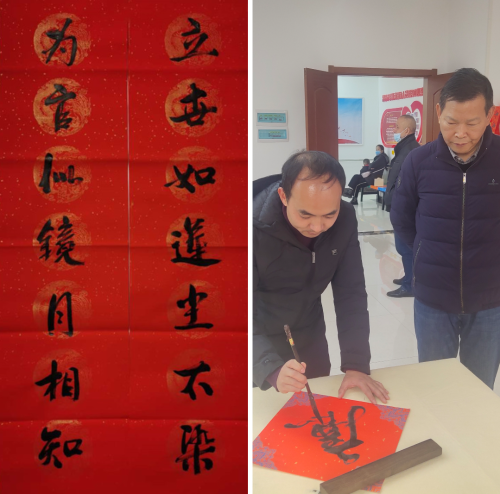 立世如莲尘不染
为官似鏡月相知